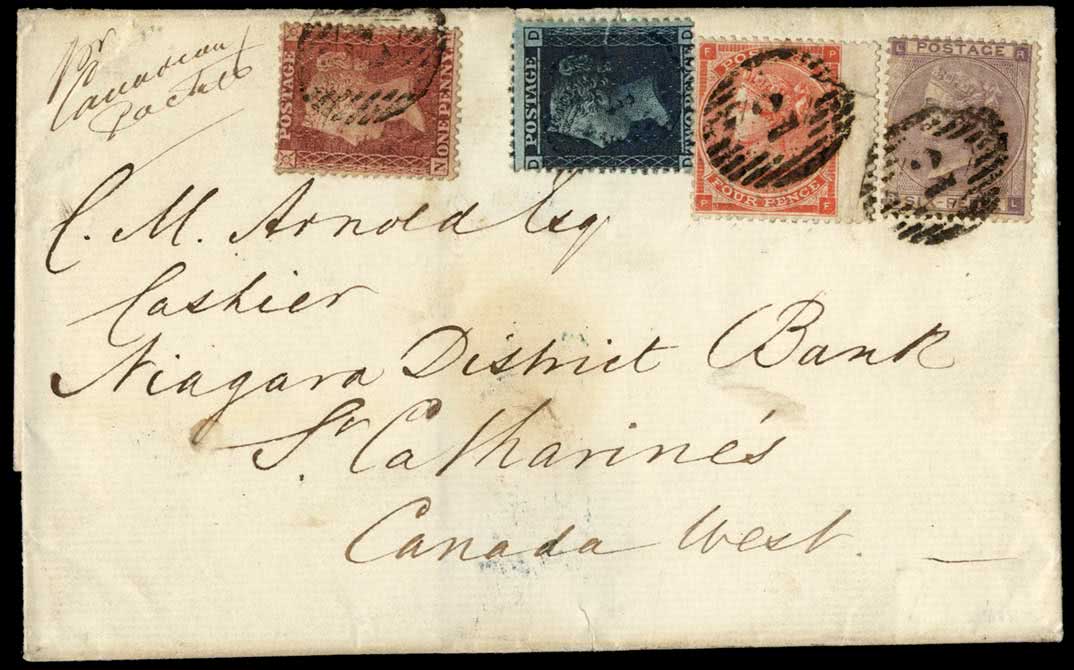 pr
Canadian
Packet
POSTAGE
ONE PENNY
N
D POSTAGE D
D TWO PENCE D
F P
FOUR PENCE
P F
L POSTAGE R
L
C. M. Arnold Esq
Cashier
Niagara District Bank
St Catharine's
Canada West.